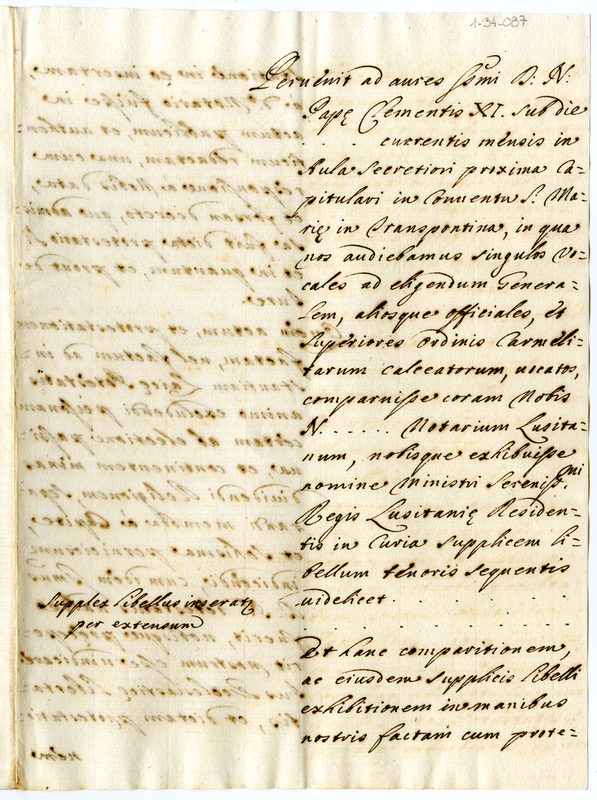 1-34-087
Pervenit ad aures Ssmi D: N:
Papę Clementis XI. sub die
. . . currentis mensis in
Aula Secretiori proxima Ca=
pitulari in Conventu S. Ma=
rię in Transpontina, in qua
nos audiebamus singulos Vo=
cales ad eligendum Genera=
lem, aliosque officiales, et
Superiores Ordinis Carmeli=
tarum calceatorum, vocatos,
comparuisse coram Nobis
N. . . . . . Notarium Lusita=
num, nobisque exhibuisse
nomine Ministri Sereniss.mi
Regis Lusitanię Residen=
tis in Curia supplicem li=
bellum tenoris sequentis
videlicet . . . . . .
Supplex Libellus inserat
per extensum
Et hanc comparitionem,
ac eiusdem supplicis libelli
exhibitionem in manibus
nostris factam cum prote=